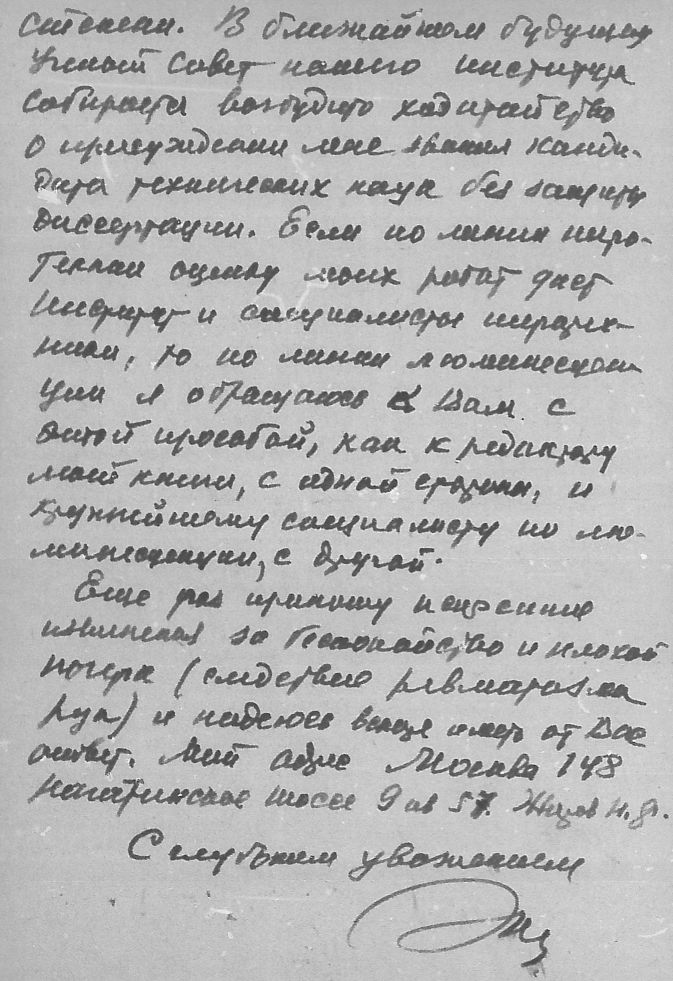 степени. В ближайшем будущем
Ученый Совет нашего института
собирается возбудить ходатайство
о присуждении мне звания канди-
дата технических наук без защиты
диссертации. Если по линии пиро-
техники оценку моих работ даст
Институт и специалисты пиротех-
ники, то по линии люминесцен-
ции я обращаюсь к Вам с
этой просьбой, как к редактору
моей книги, с одной стороны, и
крупнейшему специалисту по лю-
минесценции, с другой.
Еще раз приношу искренние
извинения за беспокойство и плохой
почерк (следствие ревматизма
рук) и надеюсь вскоре иметь от Вас
ответ. Мой адрес Москва 148
Нагатинское шоссе 9 кв 57. н.ф.
С глубоким уважением